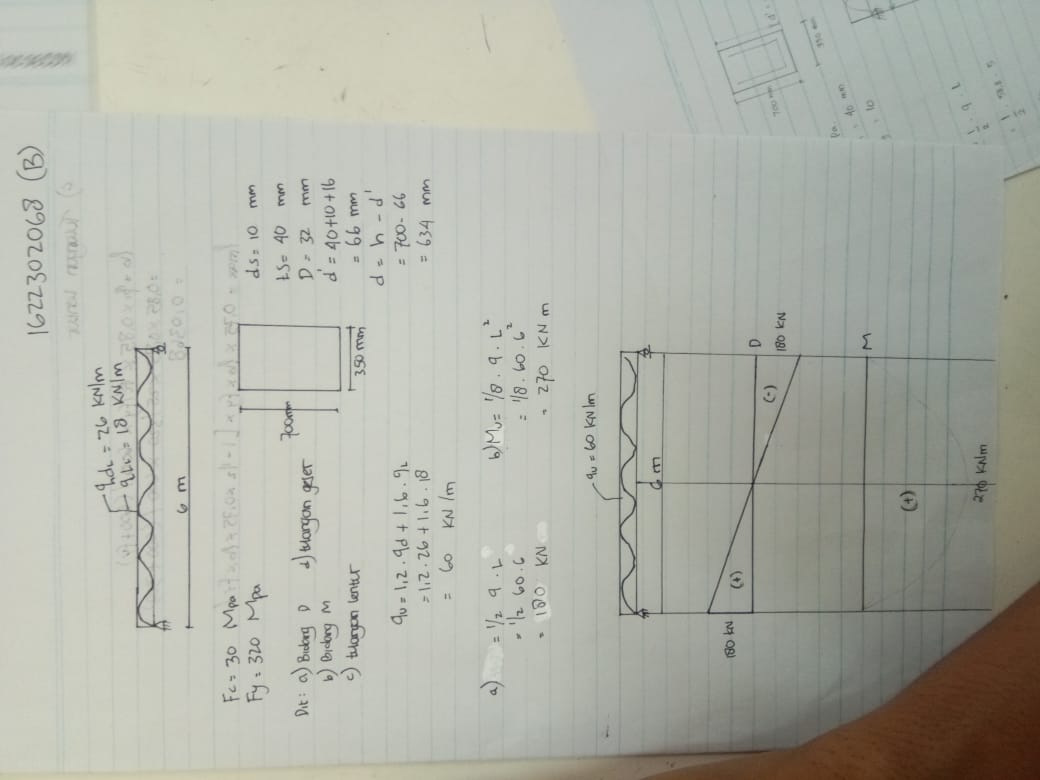 1622302068 (B)
qdL = 26 KN/m
qLL = 18 KN/m
6 m
Fc = 30 Mpa
Fy = 320 Mpa
Dit : a) Bidang D d) tulangan geser
b) Bidang M
c) tulangan lentur
700mm
350 mm
ds = 10 mm
ts = 40 mm
D = 32 mm
d' = 40+10+16
= 66 mm
d = h - d'
= 700 - 66
= 634 mm
qu = 1,2 . qd + 1,6 . qL
= 1,2 . 26 + 1,6 . 18
= 60 KN/m
a) = 1/2 q . L
= 1/2 60.6
= 180 KN
b) Mu = 1/8 . q . L²
= 1/8 . 60 . 6²
= 270 KN m
qu = 60 KN/m
6 m
180 KN
(+)
(-)
D
180 KN
M
(+)
270 KN/m
700 mm
350 mm
40 mm
10
1/2 . q . L